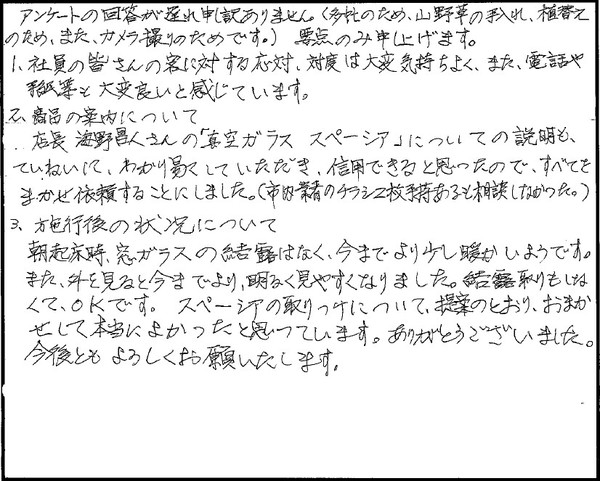 アンケートの回答が遅れ申訳ありません。(多忙のため、山野草の手入れ、植替え
のため、また、カメラ撮りのためです。) 要点のみ申上げます。
1. 社員の皆さんの客に対する応対、対度は大変気持ちよく、また、電話や
手紙等も大変良いと感じています。
2. 商品の案内について
店長 海野昌人さんの「真空ガラス スペーシア」についての説明も、
ていねいにて、わかり易くしていただき、信用できると思ったので、すべてを
まかせ依頼することにしました。(市内業者のチラシ2枚手持あるも相談しなかった。)
3. 施行後の状況について
朝起床時、窓ガラスの結露はなく、今までより少し暖かいようです。
また、外を見ると今までより、明るく見やすくなりました。結露取りもしな
くて、OKです。 スペーシアの取りつけについて、提案のとおり、おまか
せして本当によかったと思っています。ありがとうございました。
今後とも よろしくお願いいたします。